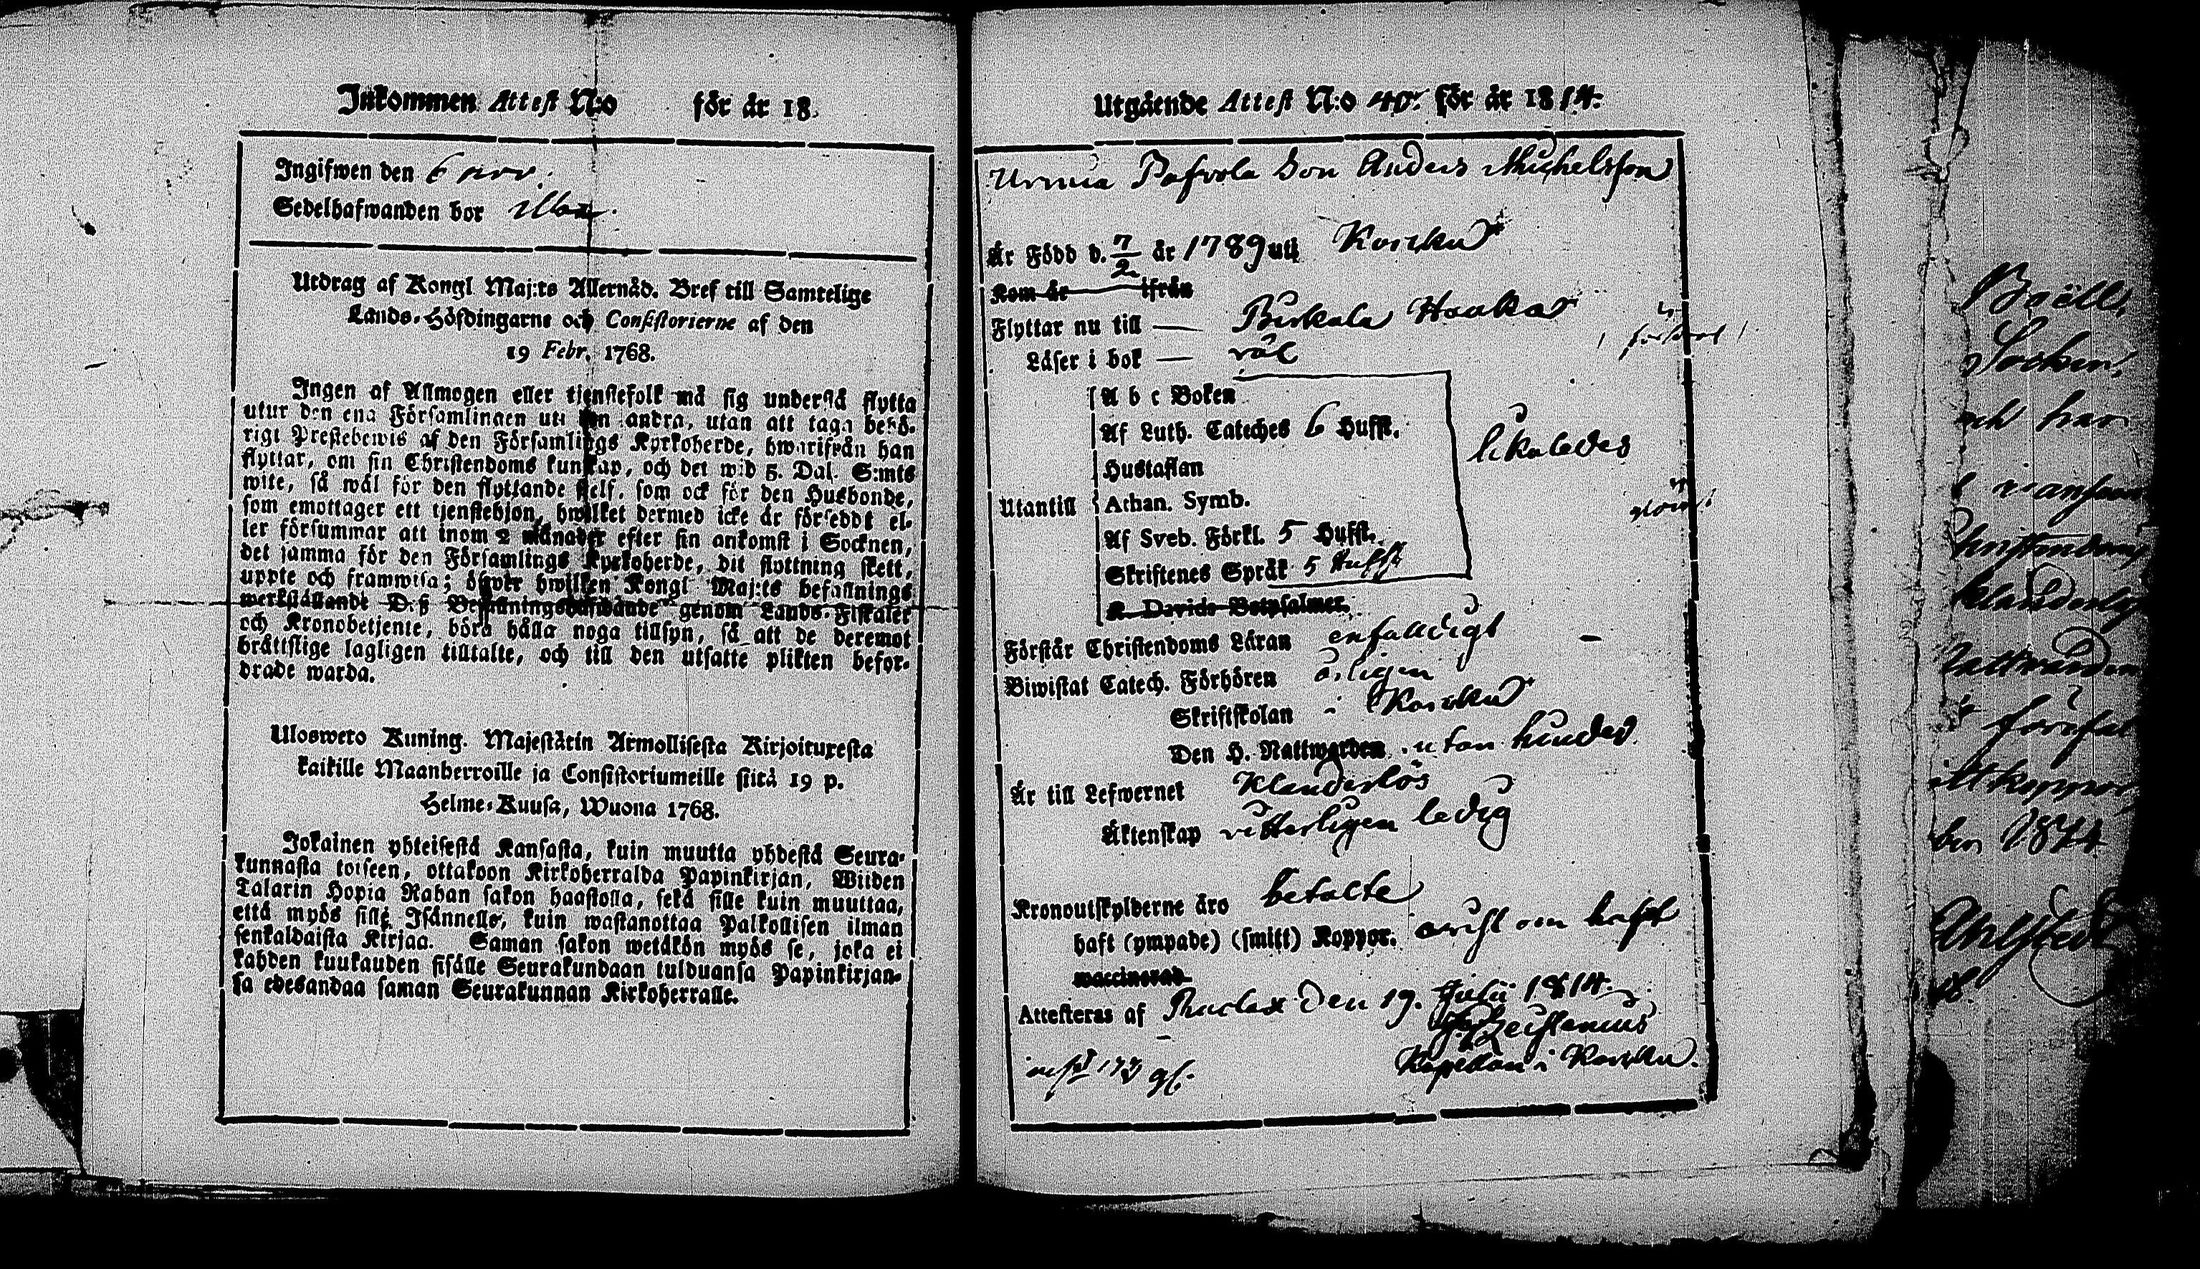 Inkommen Attest N:o för år 18
Ingifwen den 6 nov.
Sedelhafwanden bor
Utdrag af Kongl Maj:ts Allernåd. Bref till Samtelige
Lands-Höfdingarne och Consistorierne af den
19 Febr. 1768.
Ingen af Allmogen eller tjenstefolk må sig understå flytta
utur den ena Församlingen uti den andra, utan att taga behö-
rigt Prestebewis af den Församlings Kyrkoherde, hwarifrån han
flyttar, om sin Christendoms kunskap, och det wid 5. Dal. S:mts
wite, så wäl för den flyttande sjelf, som ock för den Husbonde,
som emottager ett tjenstehjon, hwilket dermed icke är försedt el-
ler försummar att inom 2 månader efter sin ankomst i Socknen,
det samma för den Församlings Kyrkoherde, dit flyttning skett,
uppte och framwisa; öfwer hwilken Kongl Maj:ts befallnings
werkställande Dess Befallningshafwande genom Lands-Fiskaler
och Kronobetjente, böra hålla noga tillsyn, så att de deremot
bråttslige lagligen tilltalte, och till den utsatte plikten befor-
drade warda.
Ulosweto Kuning. Majestätin Armollisesta Kirjoituxesta
kaikille Maanherroille ja Consistoriumeille siitä 19 p.
Helme-Kuusa, Wuona 1768.
Jokainen yhteisestä Kansasta, kuin muutta yhdestä Seura-
kunnasta toiseen, ottakoon Kirkoherralda Papinkirjan, Wiiden
Talarin Hopia Rahan sakon haastolla, sekä sille kuin muuttaa,
että myös sille Isännelle, kuin wastanottaa Palkollisen ilman
senkaldaista Kirjaa. Saman sakon wetäkön myös se, joka ei
kahden kuukauden sisälle Seurakundaan tulduansa Papinkirjan-
sa edesandaa saman Seurakunnan Kirkoherralle.
Utgående Attest N:o 40. för år 1814.
Urmia Pafvola Son Anders Michelsson
År Född d. 7/2 år 1789 uti Korsku
Kom år ifrån
Flyttar nu till — Birkala Haaka
Läser i bok — väl försvarl
A b c Boken
Af Luth. Cateches 6 Hufst.
likaledes
Hustaflan
Utantill Athan. Symb.
Af Sveb. Förkl. 5 Hufst.
Skriftenes Språk 5 Hufst
K Davids Botpsalmer.
Förstår Christendoms Läran enfalldigt
Biwistat Catech. Förhören årligen
Skriftskolan i
Den H. Nattwarden utan hinder
År till Lefwernet klanderlös
Äktenskap vitterligen ledig
Kronoutskylderne äro betalte
haft (ympade) (smitt) Koppor. ovist om haft
waccinerad
Attesteras af den 19. Julii 1814.
Kapellan i
Socken
och har
Christendom
klanderlig
Nattwarden
1814
Ahlstedt